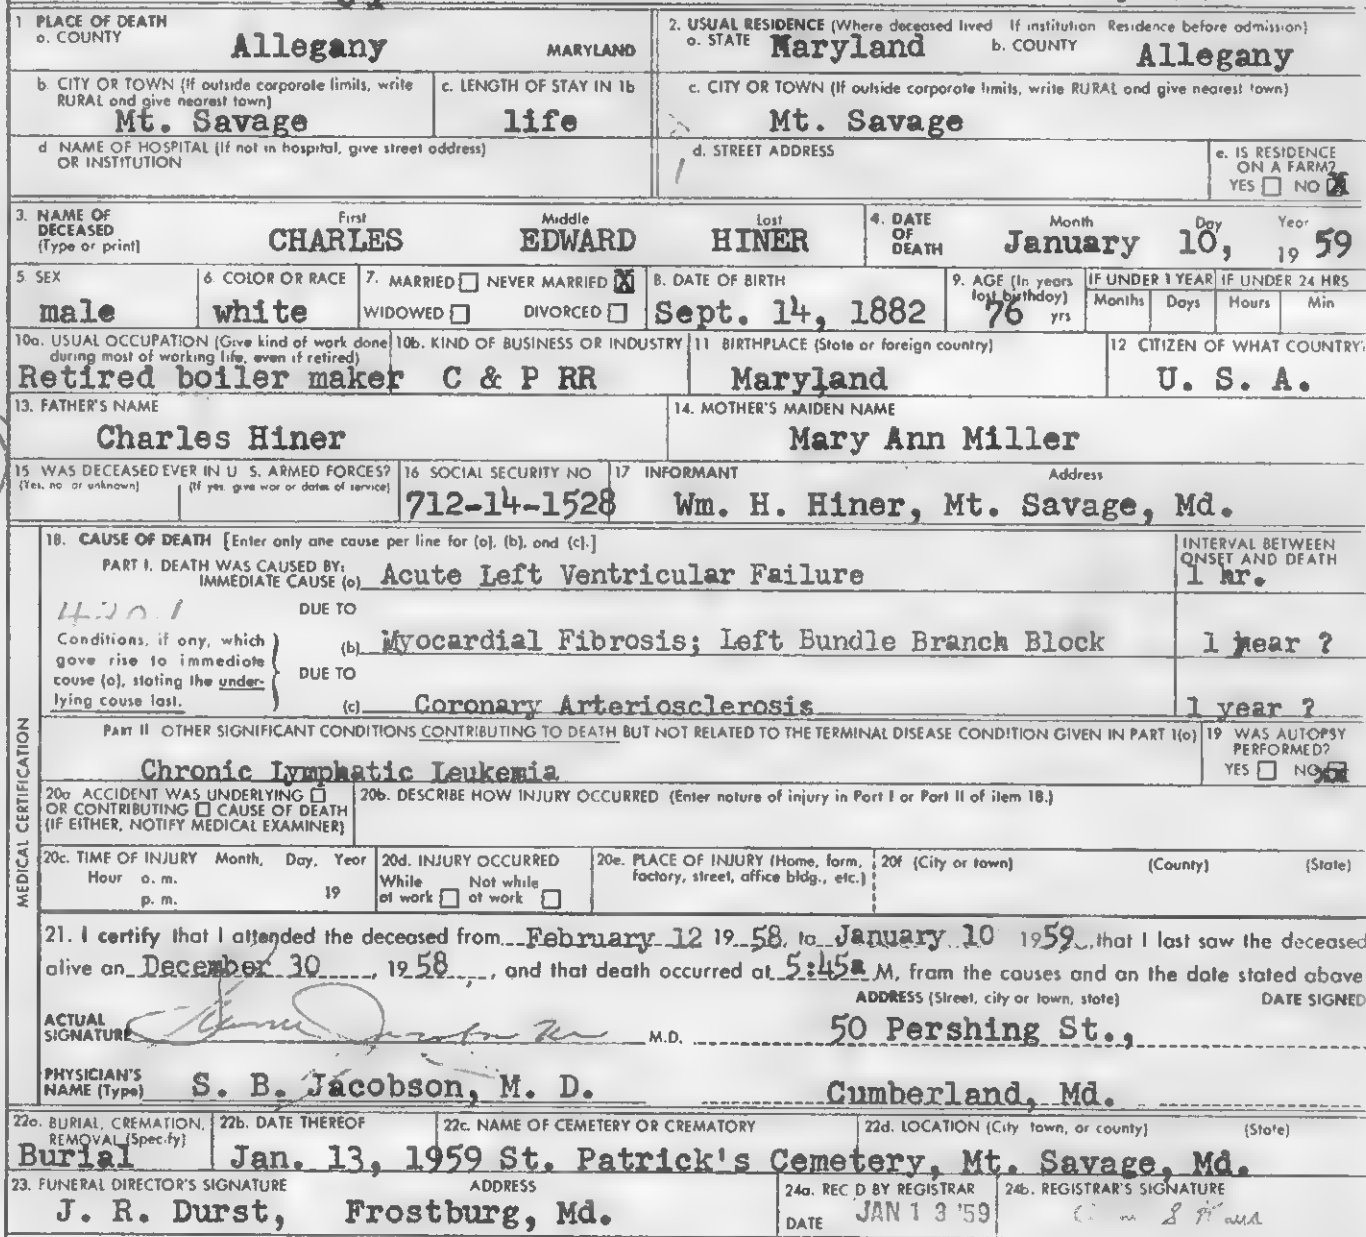 1 PLACE OF DEATH
a. COUNTY Allegany MARYLAND
2. USUAL RESIDENCE (Where deceased lived If institution Residence before admission)
a. STATE Maryland b. COUNTY Allegany
b. CITY OR TOWN (If outside corporate limits, write RURAL and give nearest town)
Mt. Savage
c. LENGTH OF STAY IN 1b
life
c. CITY OR TOWN (If outside corporate limits, write RURAL and give nearest town)
Mt. Savage
d NAME OF HOSPITAL (If not in hospital, give street address)
OR INSTITUTION
d. STREET ADDRESS
e. IS RESIDENCE
ON A FARM?
YES NO X
3. NAME OF
DECEASED
(Type or print)
First Middle Last
CHARLES EDWARD HINER
4. DATE
OF
DEATH
Month Day Year
January 10, 19 59
5. SEX
male
6. COLOR OR RACE
white
7. MARRIED NEVER MARRIED X
WIDOWED DIVORCED
8. DATE OF BIRTH
Sept. 14, 1882
9. AGE (In years
last birthday)
76 yrs
IF UNDER 1 YEAR IF UNDER 24 HRS
Months Days Hours Min
10a. USUAL OCCUPATION (Give kind of work done
during most of working life, even if retired)
Retired boiler maker
10b. KIND OF BUSINESS OR INDUSTRY
C & P RR
11 BIRTHPLACE (State or foreign country)
Maryland
12 CITIZEN OF WHAT COUNTRY
U. S. A.
13. FATHER'S NAME
Charles Hiner
14. MOTHER'S MAIDEN NAME
Mary Ann Miller
15 WAS DECEASED EVER IN U S. ARMED FORCES?
(Yes, no or unknown) (If yes, give war or dates of service)
16 SOCIAL SECURITY NO
712-14-1528
17 INFORMANT Address
Wm. H. Hiner, Mt. Savage, Md.
18. CAUSE OF DEATH [Enter only one cause per line for (a), (b), and (c).]
INTERVAL BETWEEN
ONSET AND DEATH
PART I. DEATH WAS CAUSED BY:
IMMEDIATE CAUSE (a) Acute Left Ventricular Failure 1 hr.
420.1
DUE TO
Conditions, if any, which
gave rise to immediate
cause (a), stating the under-
lying cause last.
(b) Myocardial Fibrosis; Left Bundle Branch Block 1 year ?
DUE TO
(c) Coronary Arteriosclerosis 1 year ?
PART II OTHER SIGNIFICANT CONDITIONS CONTRIBUTING TO DEATH BUT NOT RELATED TO THE TERMINAL DISEASE CONDITION GIVEN IN PART I(a)
Chronic Lymphatic Leukemia
19 WAS AUTOPSY
PERFORMED?
YES NO
MEDICAL CERTIFICATION
20a ACCIDENT WAS UNDERLYING
OR CONTRIBUTING CAUSE OF DEATH
(IF EITHER, NOTIFY MEDICAL EXAMINER)
20b. DESCRIBE HOW INJURY OCCURRED (Enter nature of injury in Part I or Part II of item 18.)
20c. TIME OF INJURY Month, Day, Year
Hour a. m.
p. m. 19
20d. INJURY OCCURRED
While Not while
at work at work
20e. PLACE OF INJURY (Home, farm,
factory, street, office bldg., etc.)
20f (City or town) (County) (State)
21. I certify that I attended the deceased from February 12 19 58, to January 10 1959, that I last saw the deceased
alive on December 30, 1958, and that death occurred at 5:45a M, from the causes and on the date stated above
ADDRESS (Street, city or town, state) DATE SIGNED
ACTUAL
SIGNATURE M.D. 50 Pershing St.,
PHYSICIAN'S
NAME (Type) S. B. Jacobson, M. D. Cumberland, Md.
22a. BURIAL, CREMATION,
REMOVAL (Specify)
Burial
22b. DATE THEREOF
Jan. 13, 1959
22c. NAME OF CEMETERY OR CREMATORY
St. Patrick's Cemetery,
22d. LOCATION (City town, or county) (State)
Mt. Savage, Md.
23. FUNERAL DIRECTOR'S SIGNATURE ADDRESS
J. R. Durst, Frostburg, Md.
24a. REC D BY REGISTRAR
DATE JAN 13 '59
24b. REGISTRAR'S SIGNATURE